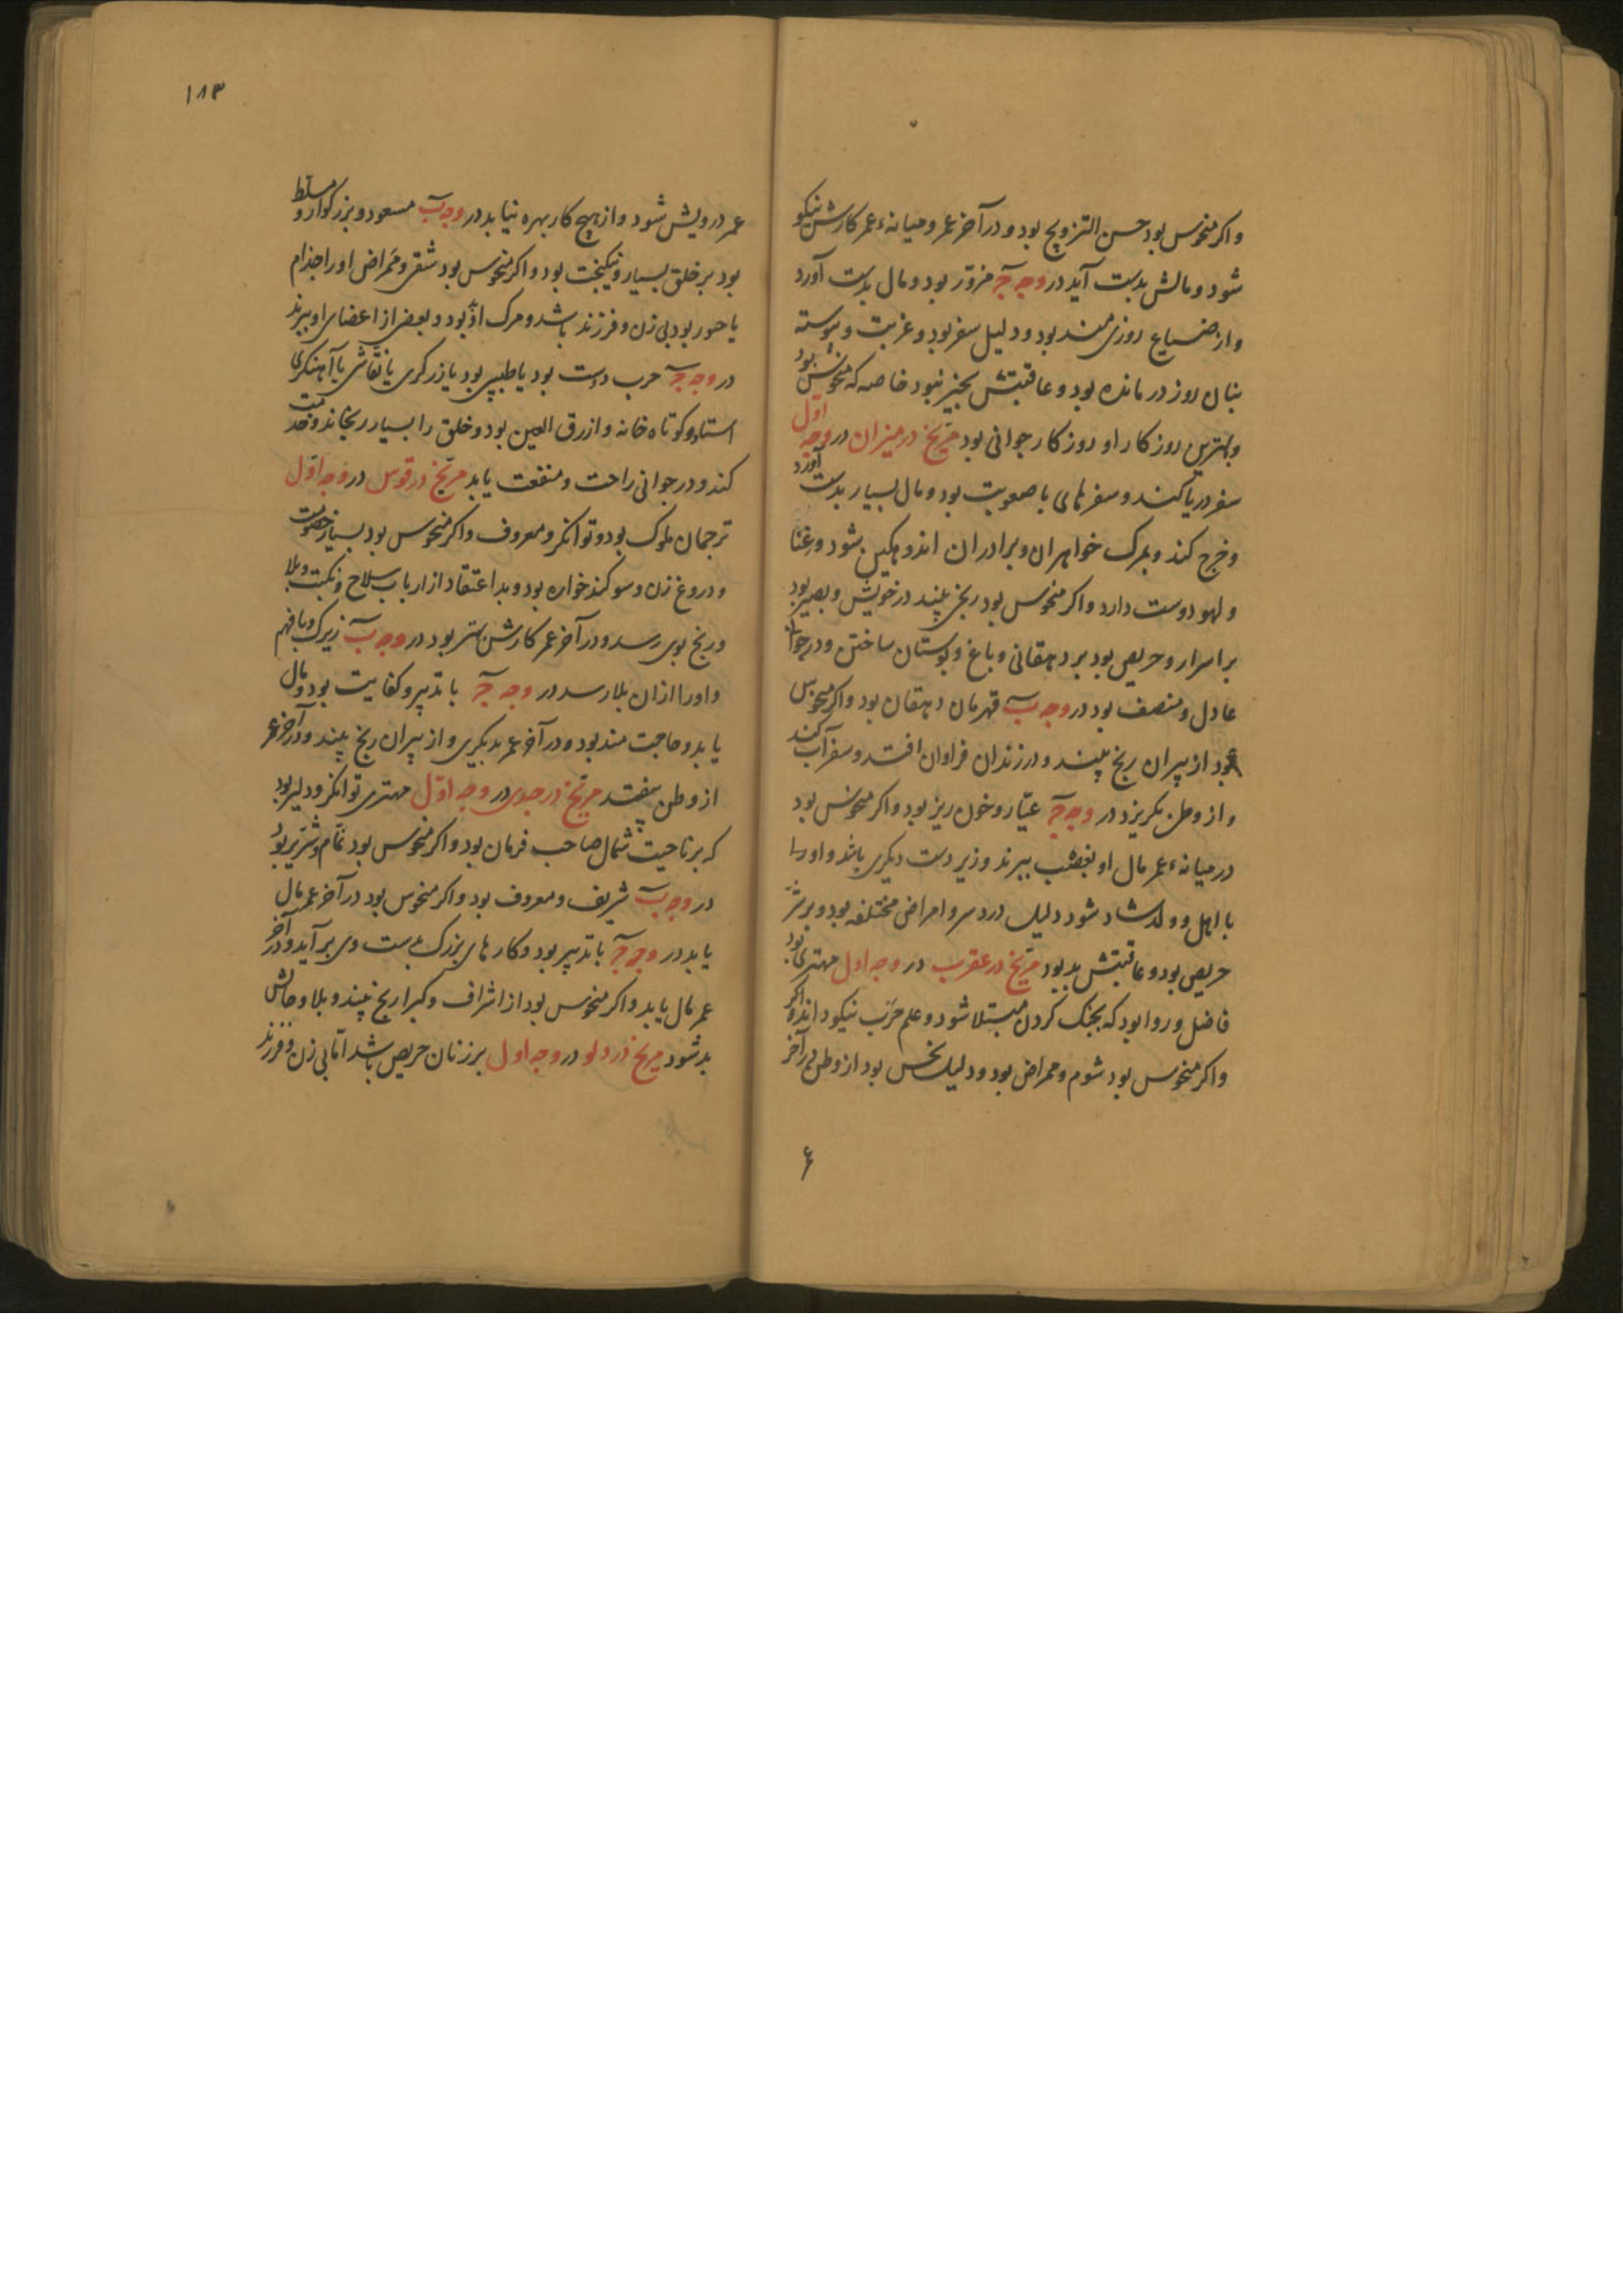 واکر منحوس بود حسن التزویج بود و در آخر عمر و میانهٔ عمر کارش نیکو
شود و مالش بدست آید در وجه جَ مزوّر بود و مال بدست آورد
و از ضیاع روزی مند بود و دلیل سفر بود و غربت و پیوسته
بنان روز درمانده بود و عاقبتش بخیر نبود خاصه که منحوس بود
و بهترین روزکار او روزکار جوانی بود مرّیخ در میزان در وجه اوّل
سفر دریا کند و سفرهای با صعوبت بود و مال بسیار بدست آورد
و خرج کند و بمرک خواهران و برادران اندوهکین شود و غنا
و لهو دوست دارد و اکر منحوس بود رنج بیند در خویش و بصیر بود
بر اسرار و حریص بود بر دهقانی و باغ و بوستان ساختن و در جوانی
عادل و منصف بود در وجه بَ قهرمان دهقان بود و اکر منحوس
بود از پیران رنج بیند و در زندان فراوان افتد و سفر آب کند
و از وطن بکریزد در وجه جَ عیّار و خون ریز بود و اکر منحوس بود
در میانهٔ عمر مال او بغصب ببرند و زیر دست دیکری باشد و او را
با اهل و ولد شاد شود دلیل درد سر و امراض مختلفه بود و بر شرّ
حریص بود و عاقبتش بد بود مرّیخ در عقرب در وجه اول مهتری بود
فاضل و روا بود که بجنک کردن مبتلا شود و علم حَرب نیکو داند و اکر
واکر منحوس بود شوم و ممراض بود و دلیل نحس بود از وطن و در آخر
۶
۱۸۳
عمر درویش شود و از هیچ کار بهره نیابد در وجه بَ مسعود و بزرکوار و مسلّط
بود بر خلق بسیار و نیکبخت بود و اکر منحوس بود شقی و ممراض او را جذام
یا بود بی زن و فرزند باشد و مرک او بود و بعضی از اعضای او ببرند
در وجه جَ حرب دوست بود یا طبیبی بود یا زرکری یا نقّاشی یا آهنکری
استاد و کوتاه خانه و ازرق العین بود و خلق را بسیار رنجاند و خدمت
کند و در جوانی راحت و منفعت یابد مرّیخ در قوس در وجه اوّل
ترجمان ملوک بود و توانکر و معروف و اکر منحوس بود بسیار خصومت
و دروغ زن و سوکند خواره بود و بد اعتقاد از ارباب سلاح و نکبت و بلا
و رنج بوی رسد و در آخر عمر کارش بهتر بود در وجه بَ زیرک و با فهم
و او را از ان بلا رسد در وجه جَ با تدبیر و کفایت بود و مال
یابد و حاجت مند بود و در آخر عمر بدیکری و از پیران رنج بیند و در آخر عمر
از وطن بیفتد مرّیخ در جدی در وجه اوّل مهتری توانکر و دلیر بود
که بر ناحیت شمال صاحب فرمان بود و اکر منحوس بود نمّام و شریر بود
در وجه بَ شریف و معروف بود و اکر منحوس بود در آخر عمر مال
یابد در وجه جَ با تدبیر بود و کارهای بزرک بدست وی برآید و در آخر
عمر مال یابد و اکر منحوس بود از اشراف و کبرا رنج بیند و بلا و حالش
بد شود مریخ در دلو در وجه اول بر زنان حریص باشد امّا بی زن و فرزند